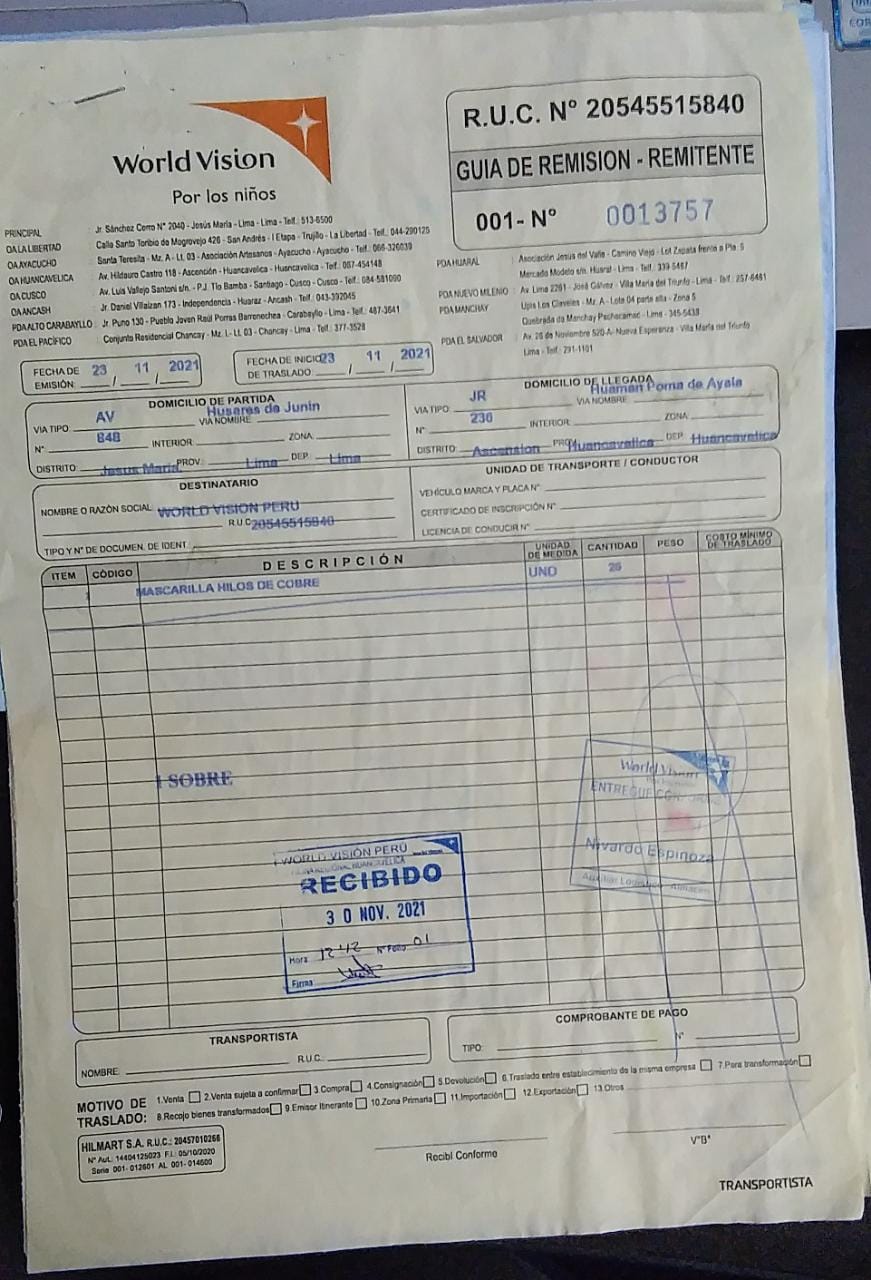 World Vision
Por los niños
R.U.C. Nº 20545515840
GUIA DE REMISION - REMITENTE
001- Nº 0013757
PRINCIPAL : Jr. Sánchez Cerro N° 2040 - Jesús María - Lima - Lima - Telf.: 513-6500
OA LA LIBERTAD : Calle Santo Toribio de Mogrovejo 426 - San Andrés - I Etapa - Trujillo - La Libertad - Telf.: 044-290125
OA AYACUCHO : Santa Teresita - Mz. A - Lt. 03 - Asociación Artesanos - Ayacucho - Ayacucho - Telf.: 066-326039
OA HUANCAVELICA : Av. Hildauro Castro 118 - Ascención - Huancavelica - Huancavelica - Telf.: 067-454148
OA CUSCO : Av. Luis Vallejo Santoni s/n. - P.J. Tío Bamba - Santiago - Cusco - Cusco - Telf.: 084-581090
OA ANCASH : Jr. Daniel Villaizan 173 - Independencia - Huaraz - Ancash - Telf.: 043-392045
PDA ALTO CARABAYLLO : Jr. Puno 130 - Pueblo Joven Raúl Porras Barrenechea - Carabayllo - Lima - Telf.: 487-3641
PDA EL PACÍFICO : Conjunto Residencial Chancay - Mz. L - Lt. 03 - Chancay - Lima - Telf.: 377-3528
PDA HUARAL : Asociación Jesús del Valle - Camino Viejo - Lot Zapata frente a Pta. 5
Mercado Modelo s/n. Huaral - Lima - Telf.: 339-5487
PDA NUEVO MILENIO : Av. Lima 2261 - José Gálvez - Villa María del Triunfo - Lima - Telf.: 257-6481
PDA MANCHAY : Upis Los Claveles - Mz. A - Lote 04 parte alta - Zona 5
Quebrada de Manchay Pachacamac - Lima - 345-5438
PDA EL SALVADOR : Av. 26 de Noviembre 520-A - Nueva Esperanza - Villa María del Triunfo
Lima - Telf.: 291-1101
FECHA DE EMISIÓN: 23 / 11 / 2021
FECHA DE INICIO DE TRASLADO: 23 / 11 / 2021
DOMICILIO DE PARTIDA
VIA TIPO: AV VIA NOMBRE: Husares de Junin
N°: 848 INTERIOR: ZONA:
DISTRITO: Jesus Maria PROV.: Lima DEP.: Lima
DOMICILIO DE LLEGADA
VIA TIPO: JR VIA NOMBRE: Huaman Poma de Ayala
N°: 230 INTERIOR: ZONA:
DISTRITO: Ascension PROV. Huancavelica DEP. Huancavelica
DESTINATARIO
NOMBRE O RAZÓN SOCIAL: WORLD VISION PERU
R.U.C. 20545515840
TIPO Y N° DE DOCUMEN. DE IDENT.:
UNIDAD DE TRANSPORTE / CONDUCTOR
VEHÍCULO MARCA Y PLACA N°:
CERTIFICADO DE INSCRIPCIÓN N°:
LICENCIA DE CONDUCIR N°:
ITEM CÓDIGO DESCRIPCIÓN UNIDAD DE MEDIDA CANTIDAD PESO COSTO MÍNIMO DE TRASLADO
MASCARILLA HILOS DE COBRE UND 26
1 SOBRE
World Vision
ENTREGUE CONFORME
Nivardo Espinoza
Auxiliar Logistico - Almacen
WORLD VISIÓN PERÚ
OFICINA REGIONAL HUANCAVELICA
RECIBIDO
30 NOV. 2021
Hora 12 42 N° Folio 01
Firma
TRANSPORTISTA
NOMBRE: R.U.C.:
COMPROBANTE DE PAGO
TIPO: N°
MOTIVO DE TRASLADO:
1.Venta 2.Venta sujeta a confirmar 3.Compra 4.Consignación 5.Devolución 6.Traslado entre establecimiento de la misma empresa 7.Para transformación
8.Recojo bienes transformados 9.Emisor Itinerante 10.Zona Primaria 11.Importación 12.Exportación 13.Otros
HILMART S.A. R.U.C.: 20457010266
N° Aut.: 14404125023 F.I.: 05/10/2020
Serie 001- 012601 AL 001- 014600
Recibí Conforme
V°B°
TRANSPORTISTA